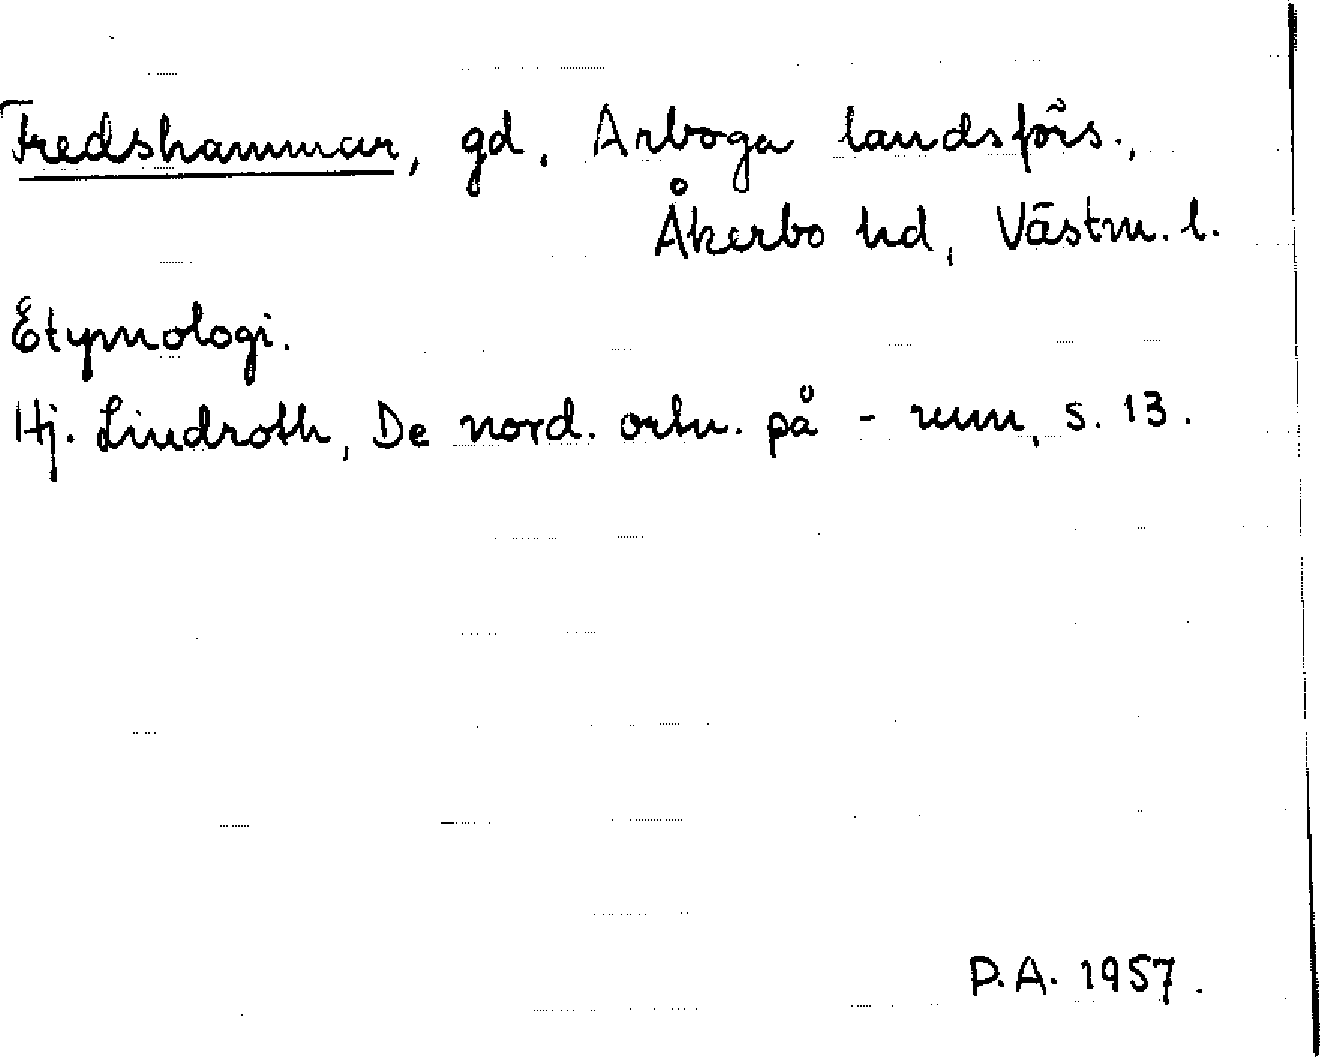 Fredshammar, gd, Arboga landsförs.,
Åkerbo hd, Västm. l.
Etymologi.
Hj. Lindroth, De nord. ortn. på - rum, s. 13.
P.A. 1957.